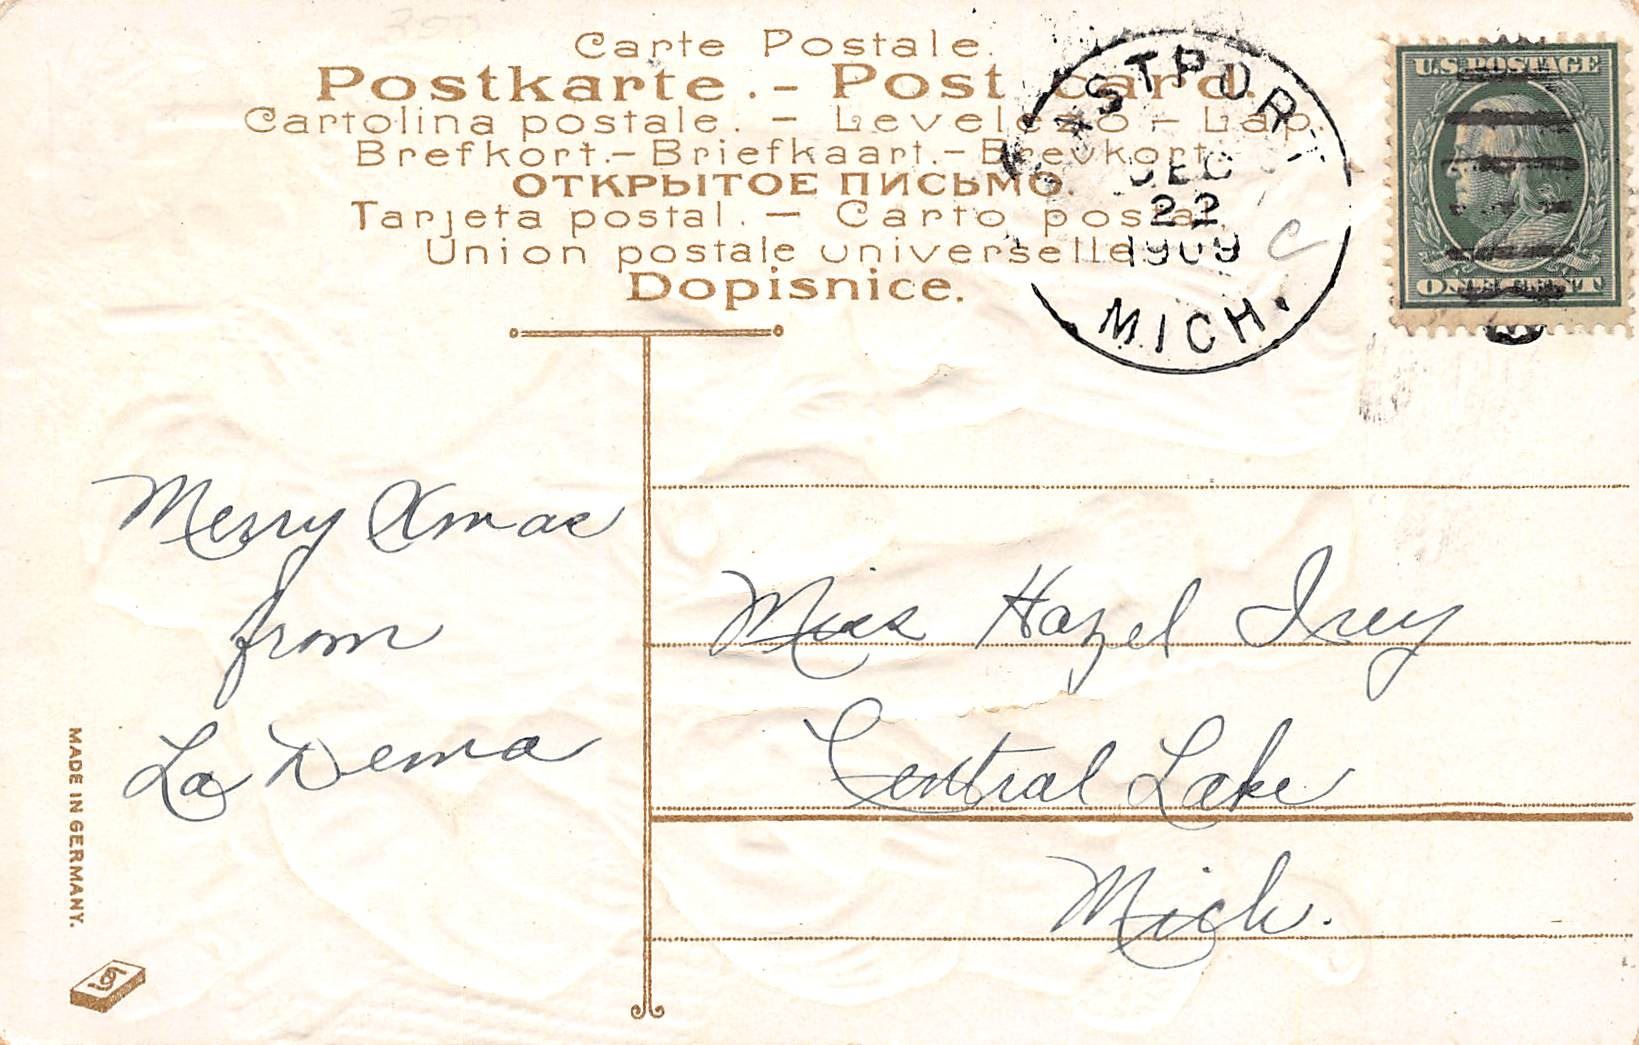 Carte Postale.
Postkarte.-Post card.
Cartolina postale. - Levelezo-Lap.
Brefkort.-Briefkaart.-Brevkort.
ОТКРЫТОЕ ПИСЬМО.
Tarjeta postal. - Carto postal.
Union postale universelle.
Dopisnice.
ASTPORT
DEC
22
1909
MICH.
U.S. POSTAGE
ONE CENT
Merry Xmas
from
La Dema
Miss Hazel Irey
Central Lake
Mich.
MADE IN GERMANY.